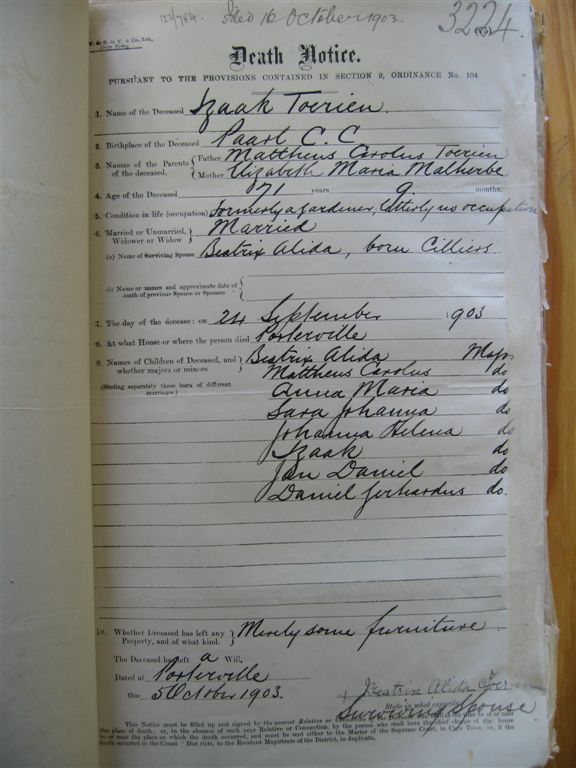 123/784. Filed 16 October 1903.
3224
Cape Town.
Death Notice.
PURSUANT TO THE PROVISIONS CONTAINED IN SECTION 9, ORDINANCE No. 104
1. Name of the Deceased Izaak Toerien.
2. Birthplace of the Deceased Paarl C. C
3. Names of the Parents of the deceased. Father Mattheus Carolus Toerien
Mother Elizabeth Maria Malherbe
4. Age of the Deceased 71 years 9 months.
5. Condition in life (occupation) formerly a gardener, latterly no occupation
6. Married or Unmarried, Widower or Widow Married
(a) Name of Surviving Spouse Beatrix Alida, born Cilliers
(b) Name or names and approximate date of death of previous Spouse or Spouses
7. The day of the decease: on 24 September 1903
8. At what House or where the person died Porterville
9. Names of Children of Deceased, and whether majors or minors Beatrix Alida Major
(Stating separately those born of different marriages.)
Mattheus Carolus do
Anna Maria do
Sara Johanna do
Johanna Helena do
Izaak do
Jan Daniel do
Daniel Gerhardus do.
10. Whether Deceased has left any Property, and of what kind. Merely some furniture
The Deceased has left a Will,
Dated at Porterville
this 5 October 1903.
Beatrix Alida Toerien
State in what capacity
Surviving Spouse
This Notice must be filled up and signed by the nearest Relative or
the place of death; or, in the absence of such near Relative or Connection, by the person who shall have the chief charge of the house
or near the place on which the death occurred, and must be sent either to the Master of the Supreme Court, in Cape Town, or, if the
death occurred in the Country Districts, to the Resident Magistrate of the District, in duplicate.